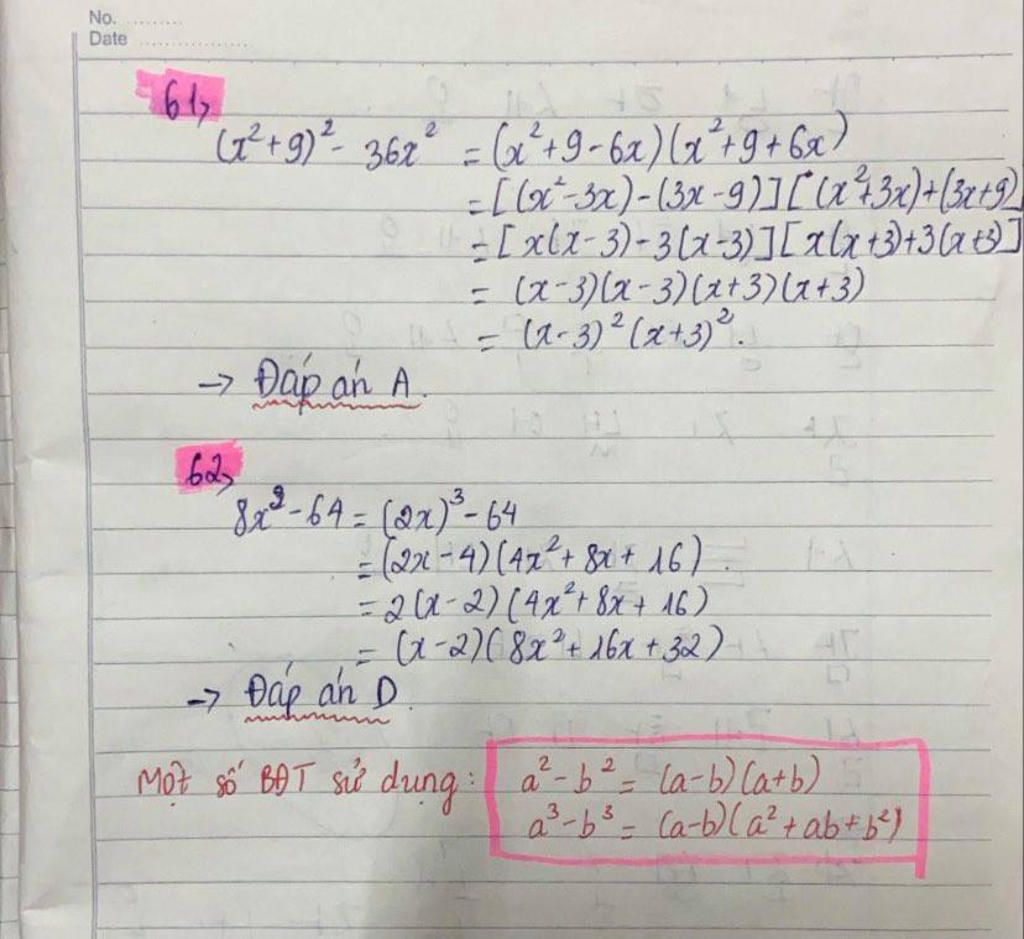 No. ..........
Date ..................
61,
(x²+9)² - 36x² = (x²+9-6x)(x²+9+6x)
= [(x²-3x)-(3x-9)][(x²+3x)+(3x+9)]
= [x(x-3)-3(x-3)][x(x+3)+3(x+3)]
= (x-3)(x-3)(x+3)(x+3)
= (x-3)²(x+3)².
→ Đáp án A.
62,
8x³-64 = (2x)³-64
= (2x-4)(4x²+8x+16).
= 2(x-2)(4x²+8x+16)
= (x-2)(8x²+16x+32)
→ Đáp án D.
Một số BĐT sử dụng: a²-b² = (a-b)(a+b)
a³-b³ = (a-b)(a²+ab+b²)